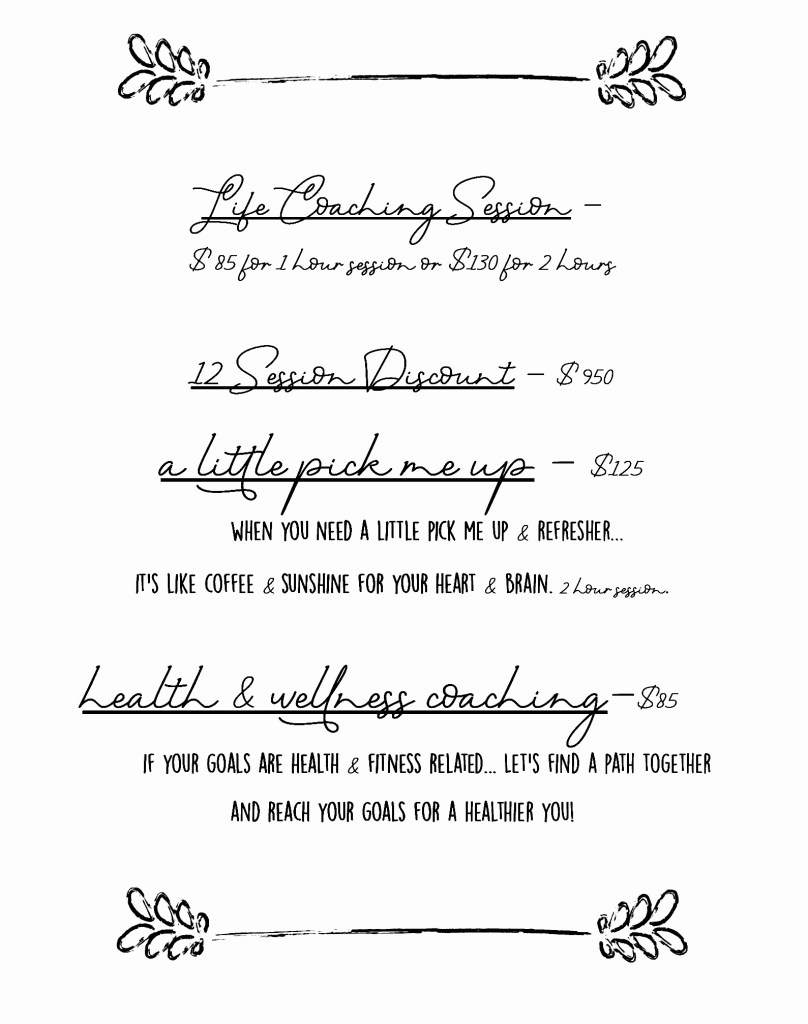 Life Coaching Session –
$85 for 1 hour session or $130 for 2 hours
12 Session Discount – $950
a little pick me up – $125
WHEN YOU NEED A LITTLE PICK ME UP & REFRESHER...
IT'S LIKE COFFEE & SUNSHINE FOR YOUR HEART & BRAIN. 2 hour session.
health & wellness coaching – $85
IF YOUR GOALS ARE HEALTH & FITNESS RELATED... LET'S FIND A PATH TOGETHER
AND REACH YOUR GOALS FOR A HEALTHIER YOU!